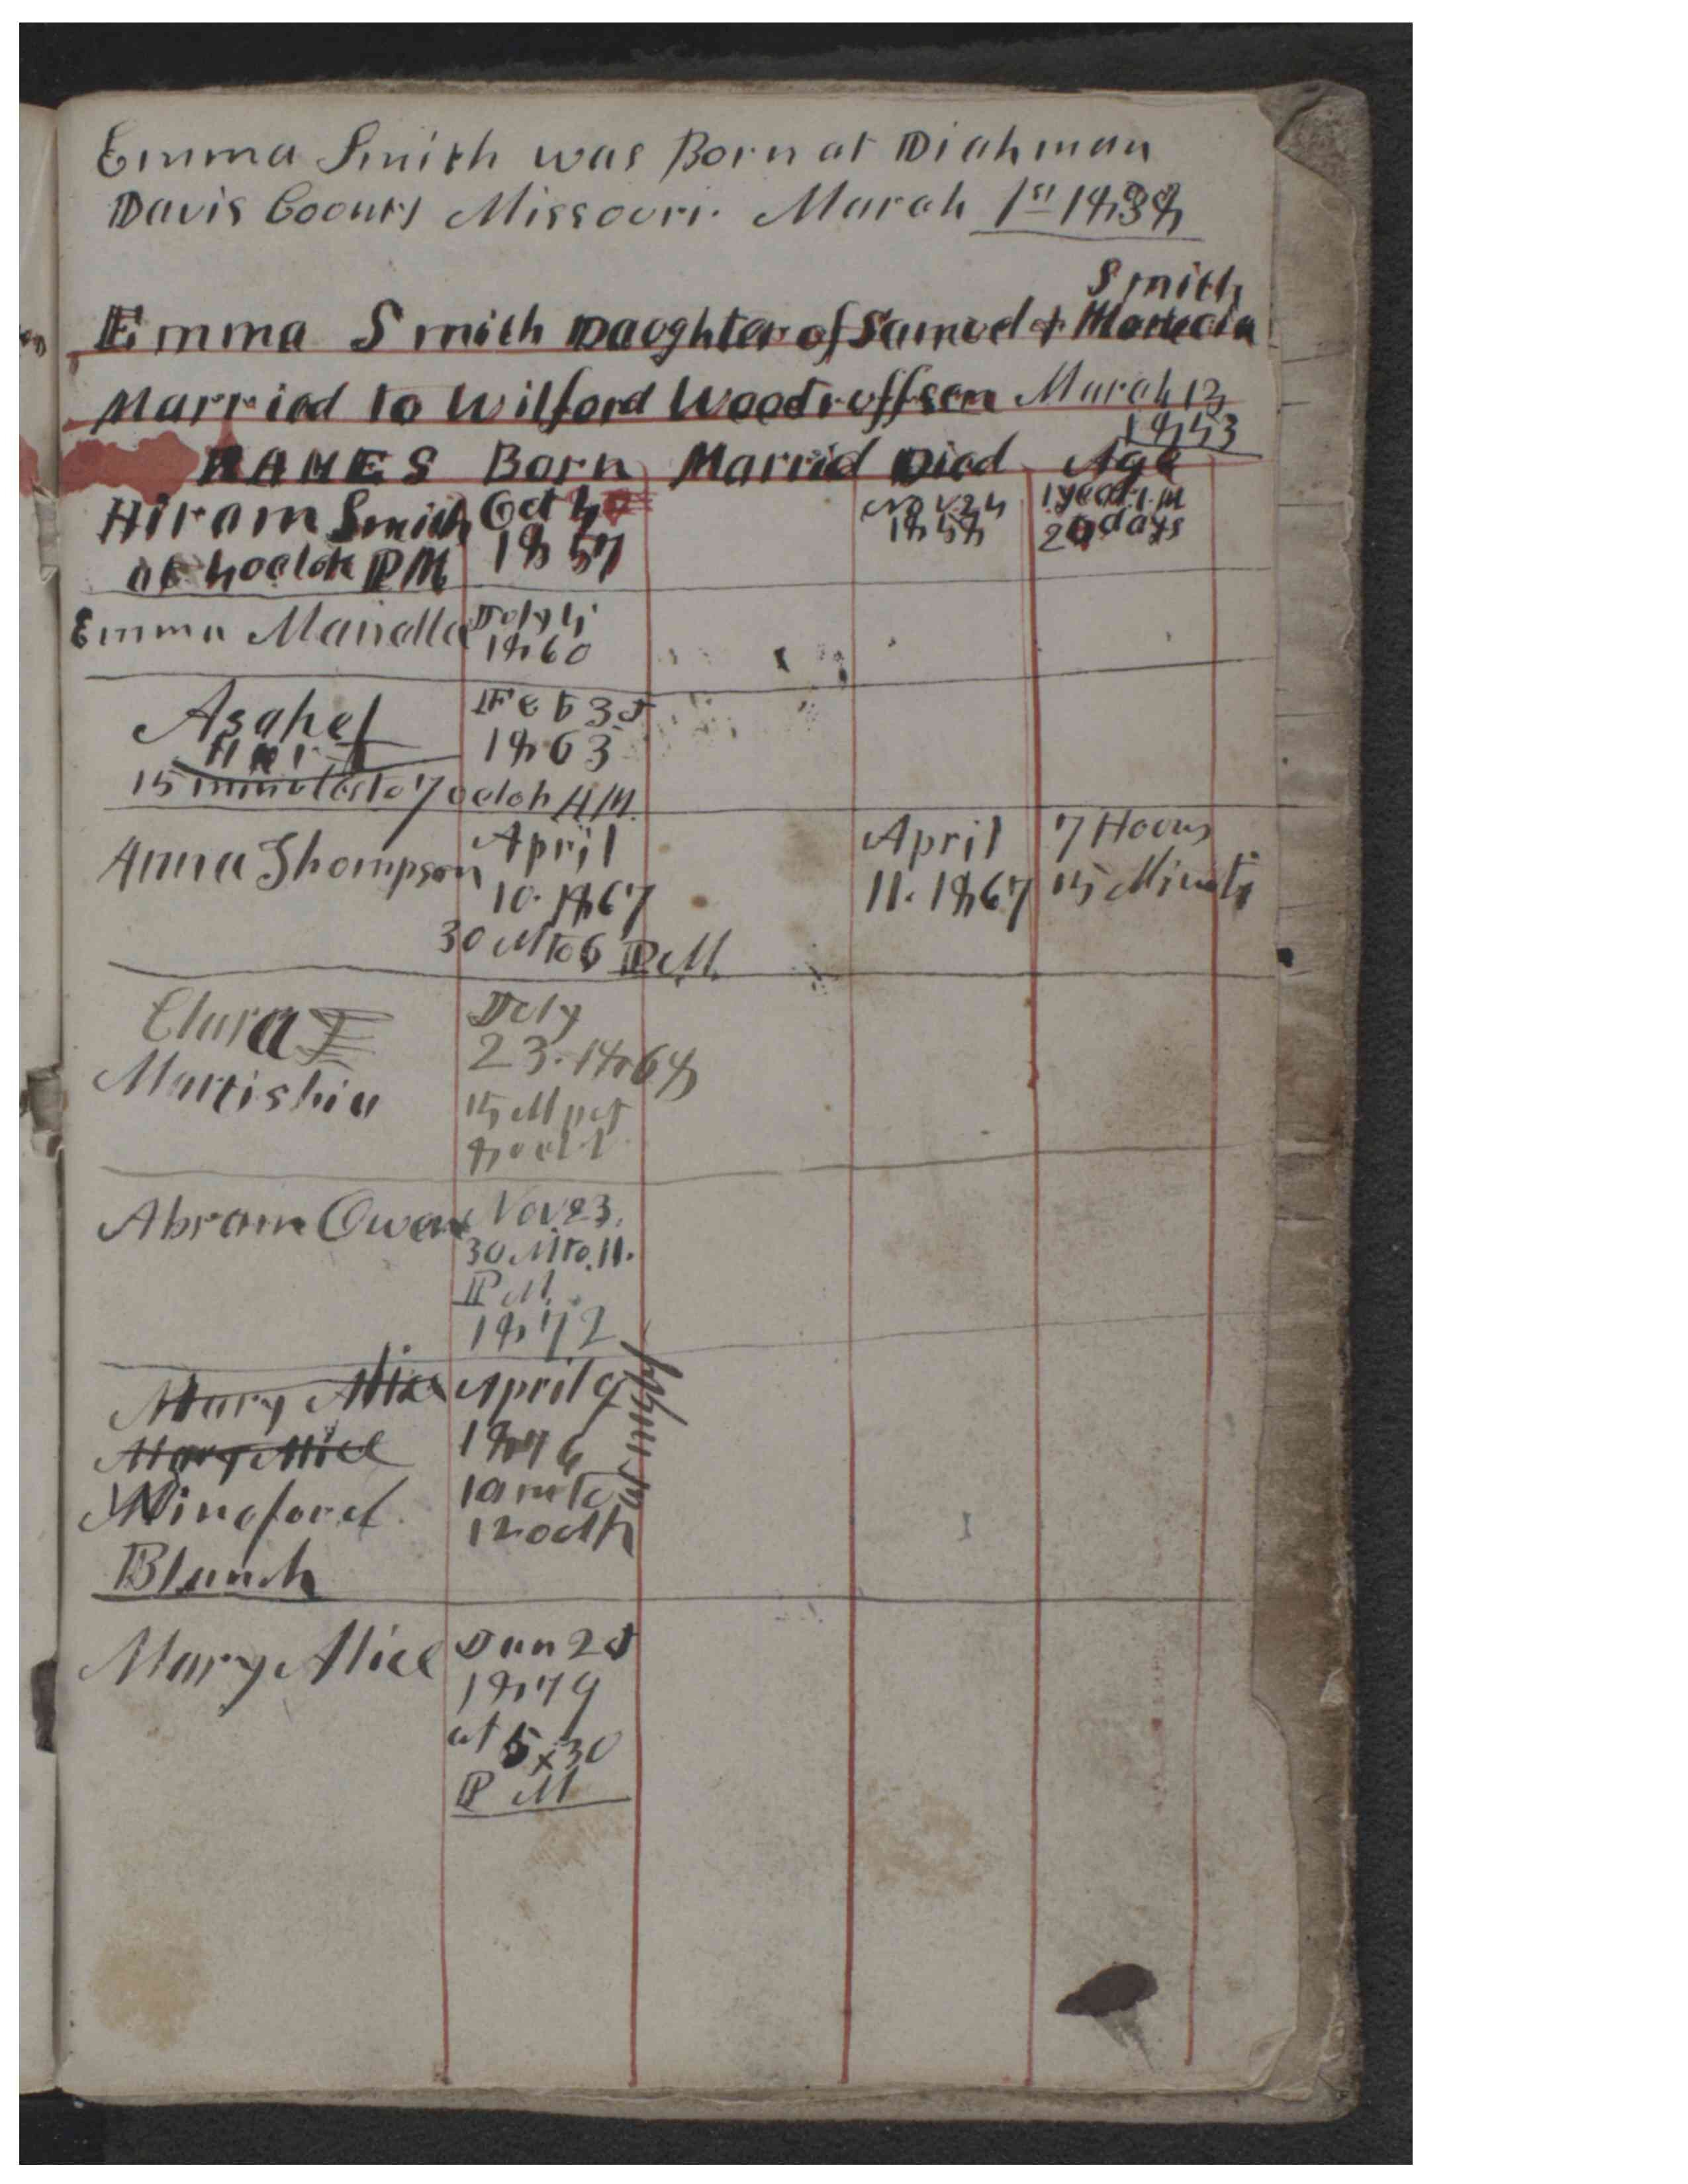 Emma Smith was Born at Diahman
Davis County Missouri. March 1st 1838
Smith
Emma Smith Daughter of Samuel &
Married to Wilford Woodruff sen March 13
1853
NAMES Born Marrid Died Age
Hiram Smith Oct 4 Nov 24 1 year 1 M
at 4 oclok PM 1857 1858 20 days
Emma Manella July 4
1860
Asahel Feb 3d
Hart 1863
15 minutes to 7 oclok AM.
Anna Thompson April April 7 Hours
10. 1867 11. 1867 15 Minuts
30 M to 6 P.M.
Clara July
23. 1868
Martishia 15 M
8 ocl
Abram Owen Nov 23.
30 M to. 11.
P M.
1872
Mary Alice April 9
Mary Alice 1876 at night
Wineford 10 m to
Blanch 12 oclk
Mary Alice Jan 2d
1879
at 5x30
P M